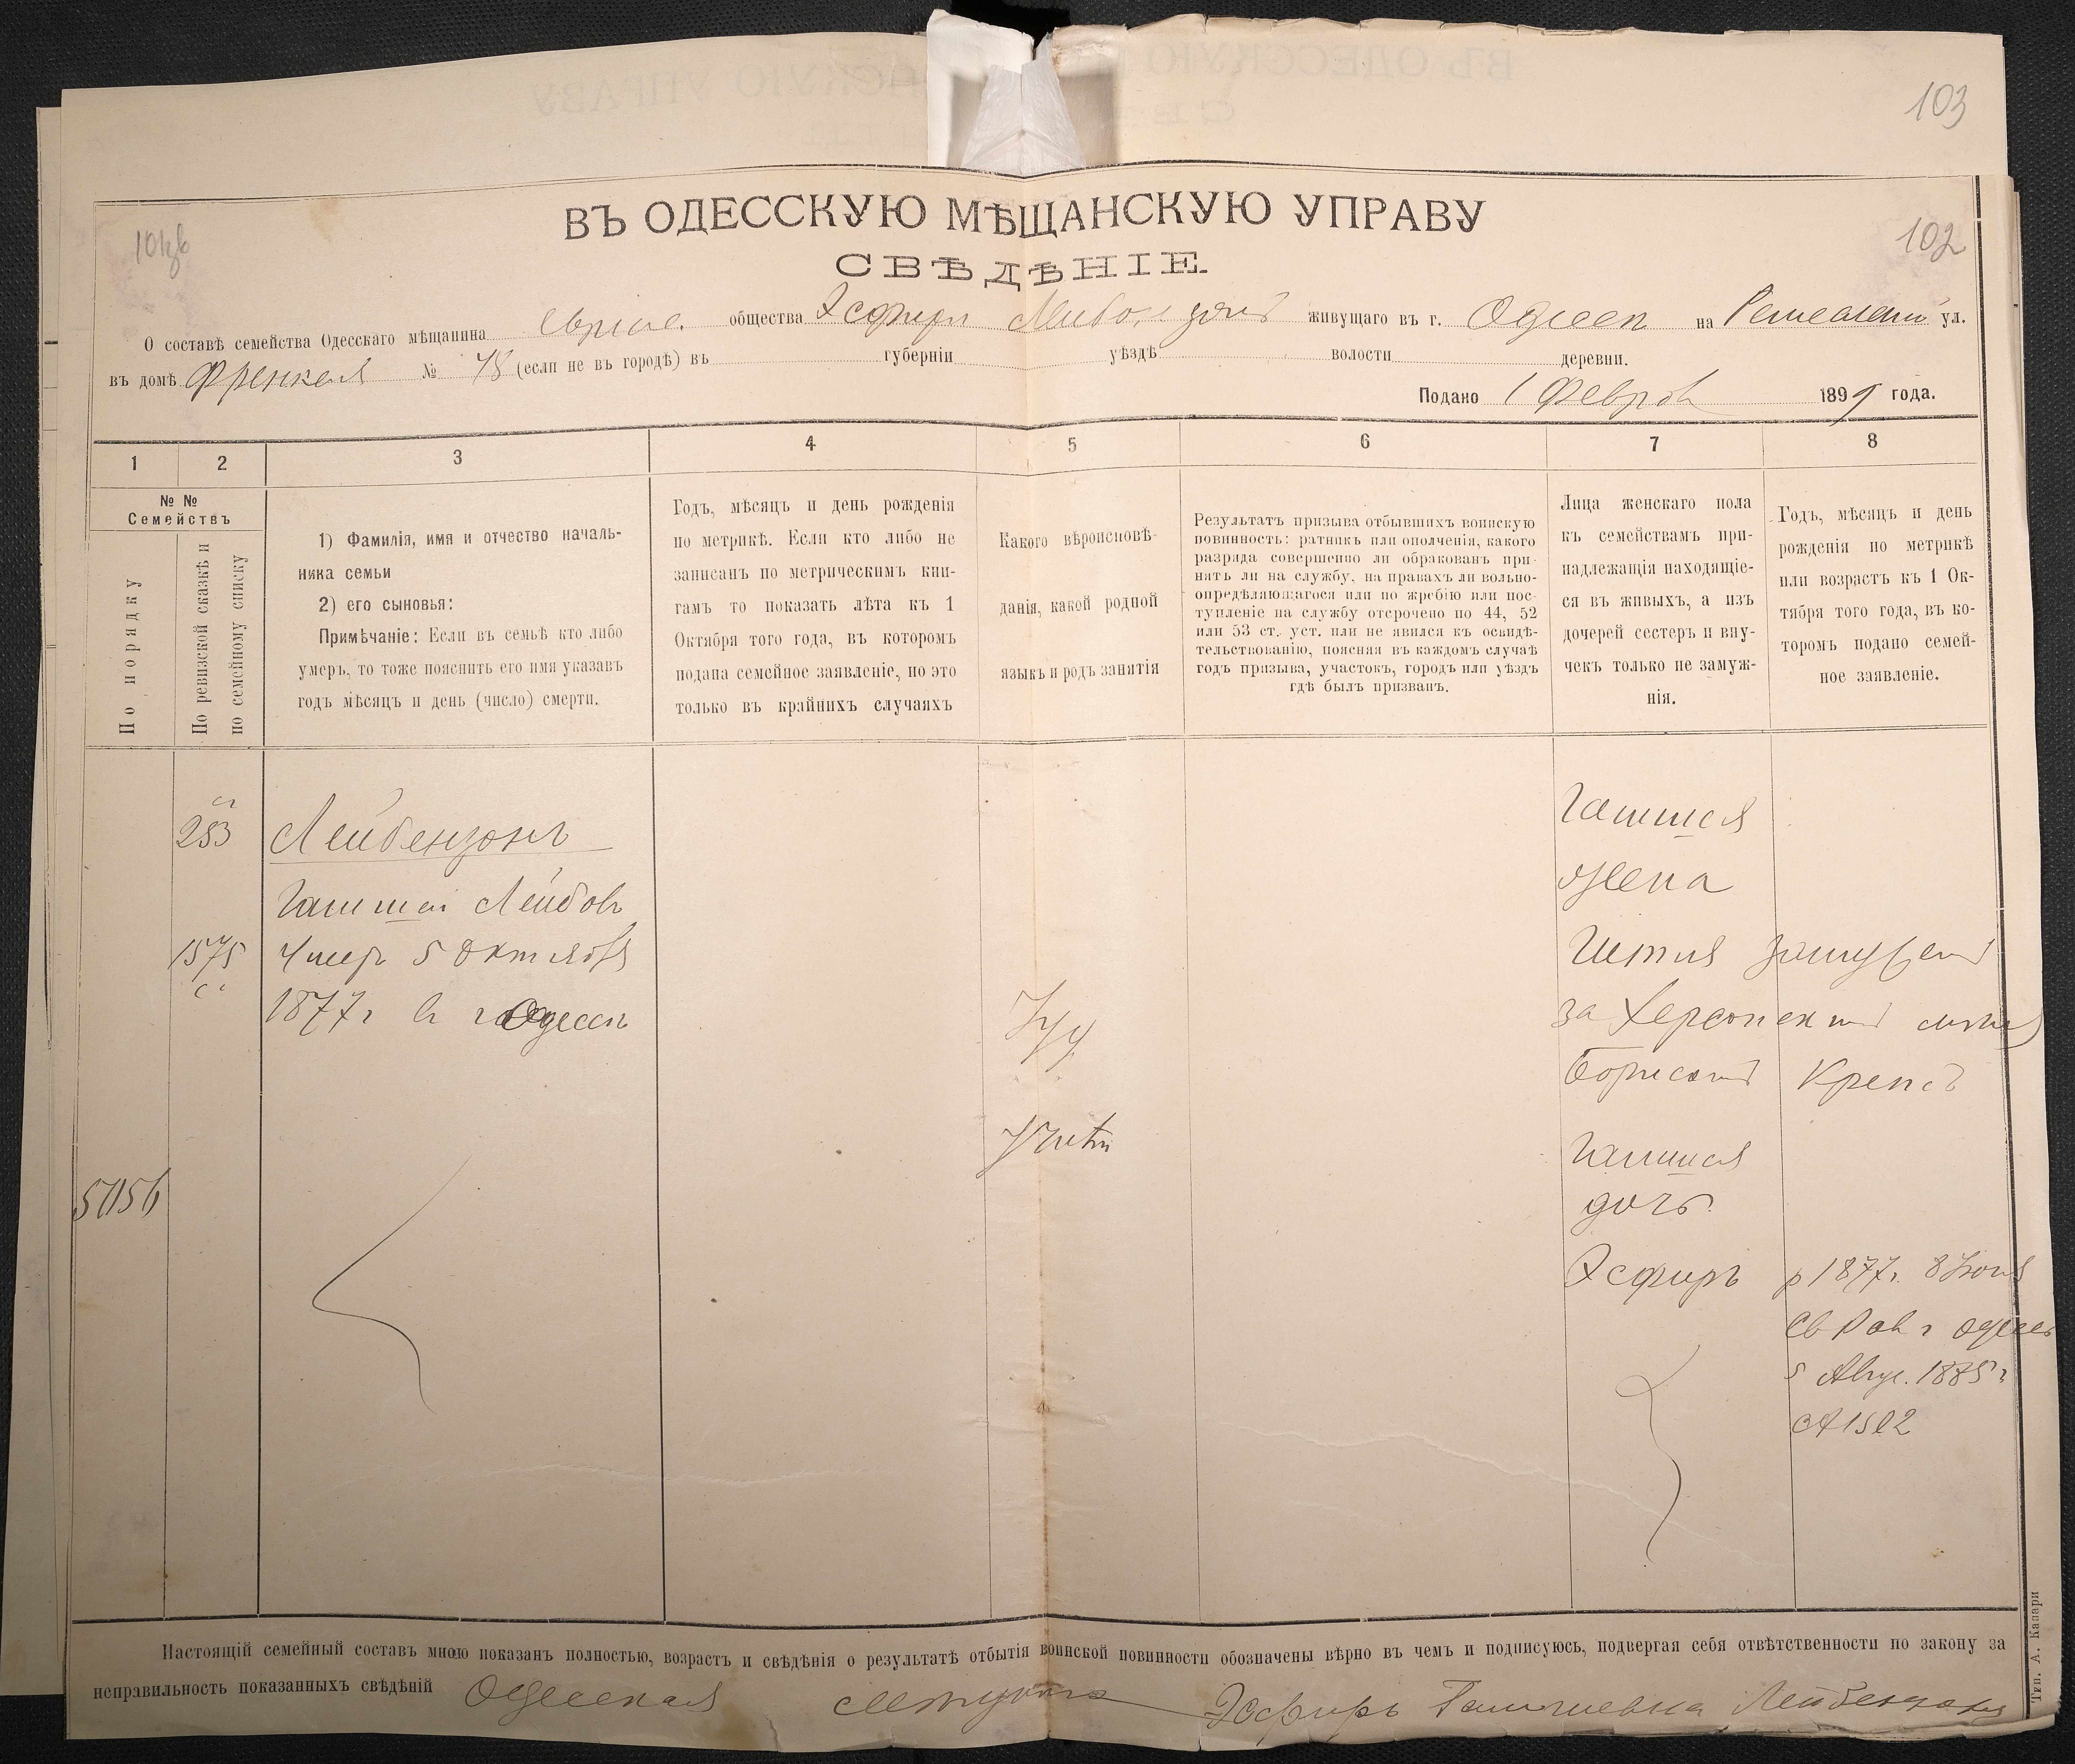 103
ВЪ ОДЕССКУЮ МѢЩАНСКУЮ УПРАВУ
102
СВѢДѢНІЕ.
О составѣ семейства Одесскаго мѣщанина общества Эсфири живущаго въ г. Одессѣ на ул.
въ домѣ Френкеля № 78 (если не въ городѣ) въ губерніи уѣздѣ волости деревни.
Подано 1 Феврал 1899 года.
1 2 3 4 5 6 7 8
№ №
Семействъ
По порядку
По ревизской сказкѣ и
по семейному списку
1) Фамилія, имя и отчество началь-
ника семьи
2) его сыновья:
Примѣчаніе: Если въ семьѣ кто либо
умеръ, то тоже пояснить его имя указавъ
годъ мѣсяцъ и день (число) смерти.
Годъ, мѣсяцъ и день рожденія
по метрикѣ. Если кто либо не
записанъ по метрическимъ кни-
гамъ то показать лѣта къ 1
Октября того года, въ которомъ
подана семейное заявленіе, но это
только въ крайнихъ случаяхъ
Какого вѣроисповѣ-
данія, какой родной
языкъ и родъ занятія
Результатъ призыва отбывшихъ воинскую
повинность: ратникъ или ополченія, какого
разряда совершенно ли обракованъ при-
нятъ ли на службу, на правахъ ли вольно-
опредѣляющагося или по жребію или пос-
тупленіе на службу отсрочено по 44, 52
или 53 ст. уст. или не явился къ освидѣ-
тельствованію, поясняя въ каждомъ случаѣ
годъ призыва, участокъ, городъ или уѣздъ
гдѣ былъ призванъ.
Лица женскаго пола
къ семействамъ при-
надлежащія находящіе-
ся въ живыхъ, а изъ
дочерей сестеръ и вну-
чекъ только не замуж-
нія.
Годъ, мѣсяцъ и день
рожденія по метрикѣ
или возрастъ къ 1 Ок-
тября того года, въ ко-
торомъ подано семей-
ное заявленіе.
253
Лейбензонъ
Гамшей Лейбовъ
1575 Умеръ 5 Октября
1877 г въ г Одессѣ
Іуд
5056
Гамшея
жена
замужем
за Херсонским
Борисомъ Крепсъ
Гамшея
дочь
Эсфирь р 1877 г. 8 Іюня
Св Рав г Одессы
5 Авгус. 1885 г
Настоящій семейный составъ мною показанъ полностью, возрастъ и свѣдѣнія о результатѣ отбытія воинской повинности обозначены вѣрно въ чемъ и подписуюсь, подвергая себя отвѣтственности по закону за
неправильность показанныхъ свѣдѣній Одесская Эсфирь Гамшиевна Лейбензонъ
Тип. А. Капари